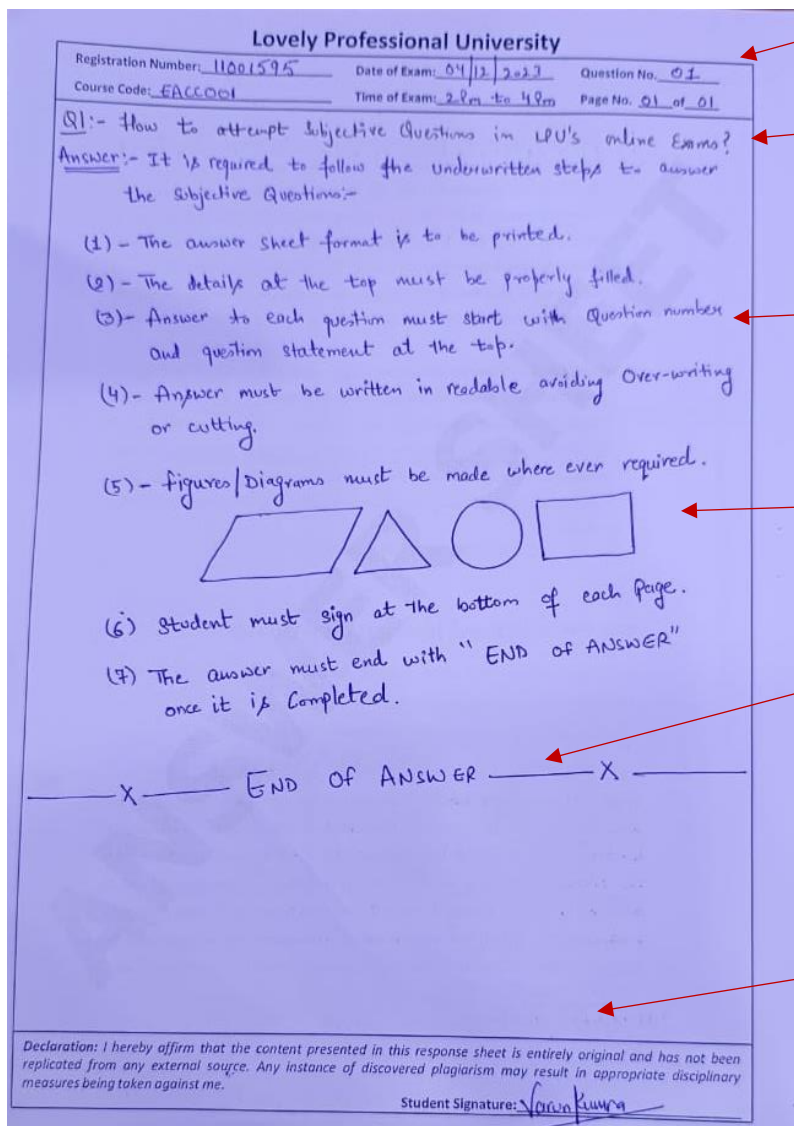 Lovely Professional University
Registration Number: 11001595 Date of Exam: 04/12/2023 Question No. 01
Course Code: EACC001 Time of Exam: 2Pm to 4Pm Page No. 01 of 01
Q1:- How to attempt Subjective Questions in LPU's online Exams?
Answer:- It is required to follow the underwritten steps to answer
the Subjective Questions:-
(1) - The answer sheet format is to be printed.
(2) - The details at the top must be properly filled.
(3) - Answer to each question must start with Question number
and question statement at the top.
(4) - Answer must be written in readable avoiding Over-writing
or cutting.
(5) - figures/Diagrams must be made where ever required.
(6) Student must sign at the bottom of each Page.
(7) The answer must end with "END of ANSWER"
once it is Completed.
X END Of ANSWER X
Declaration: I hereby affirm that the content presented in this response sheet is entirely original and has not been
replicated from any external source. Any instance of discovered plagiarism may result in appropriate disciplinary
measures being taken against me.
Student Signature: Varun
ANSWER SHEET